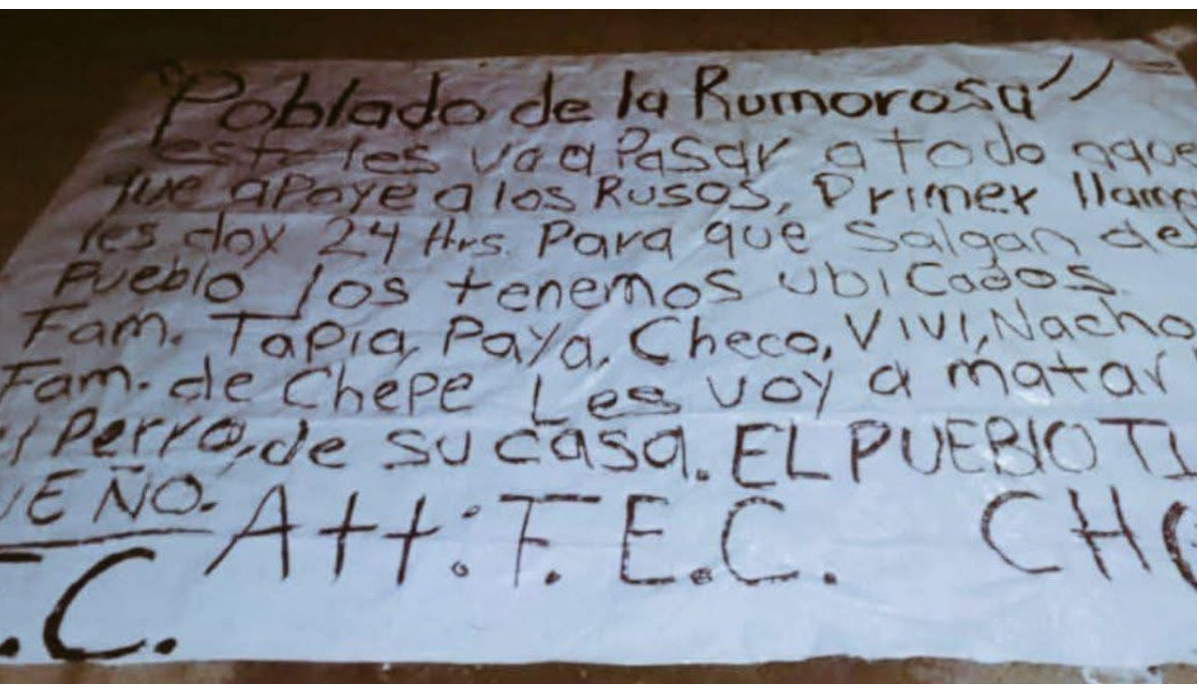 "Poblado de la Rumorosa"
esto les va a Pasar a todo aque
que aPoye a los Rusos, Primer llama
les doy 24 Hrs. Para que Salgan del
Pueblo los tenemos ubicados.
Fam. Tapia, Paya, Checo, Vivi, Nacho,
Fam. de Chepe Les voy a matar
el Perro, de su casa. EL PUEBlO TI
UEÑO.
Att: F.E.C. CH
.C.